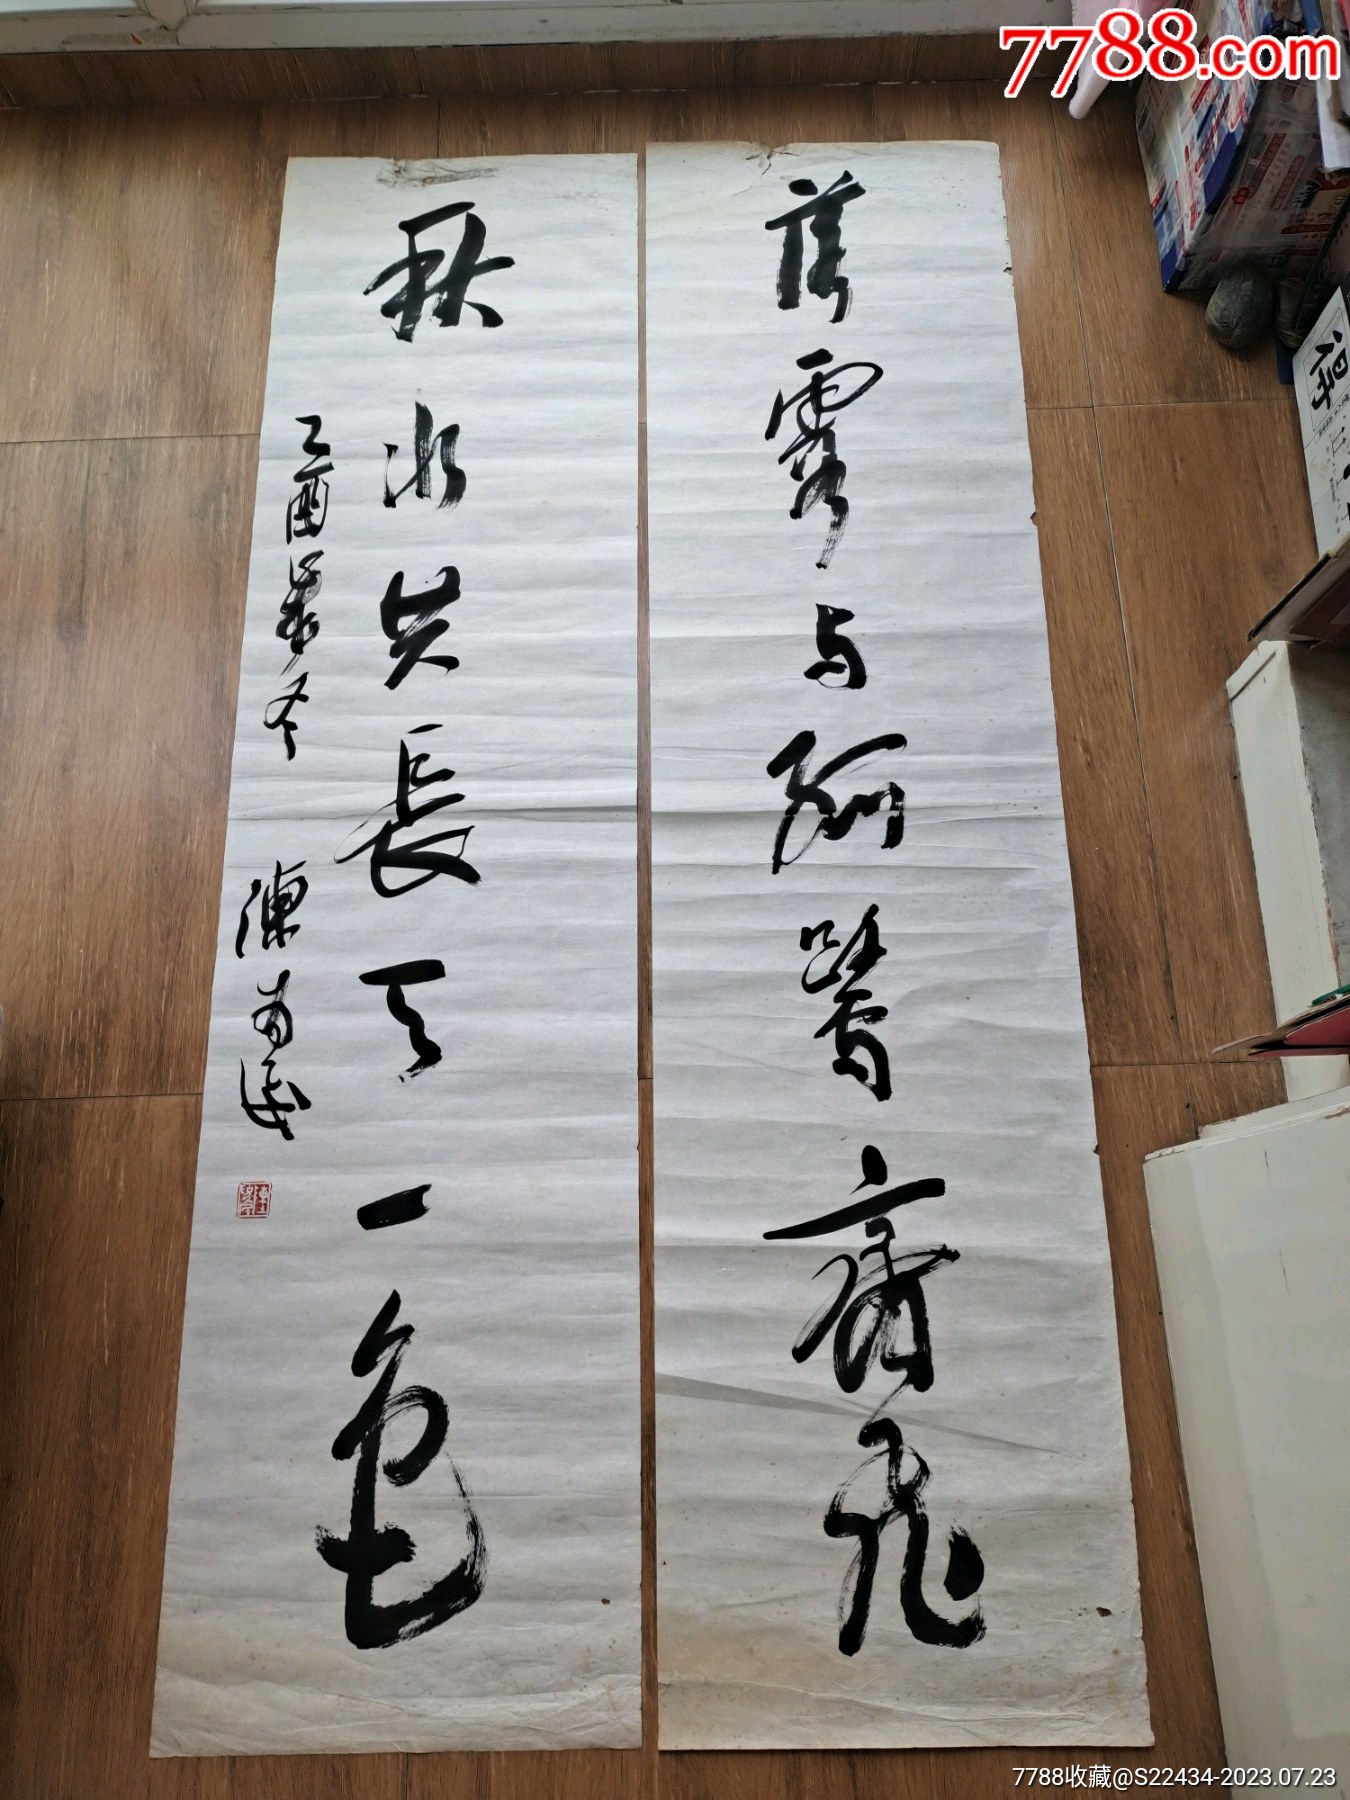 7788.com
落霞与孤鶩齊飛
秋水共長天一色
乙酉 冬 陳
得
7788收藏@S22434-2023.07.23